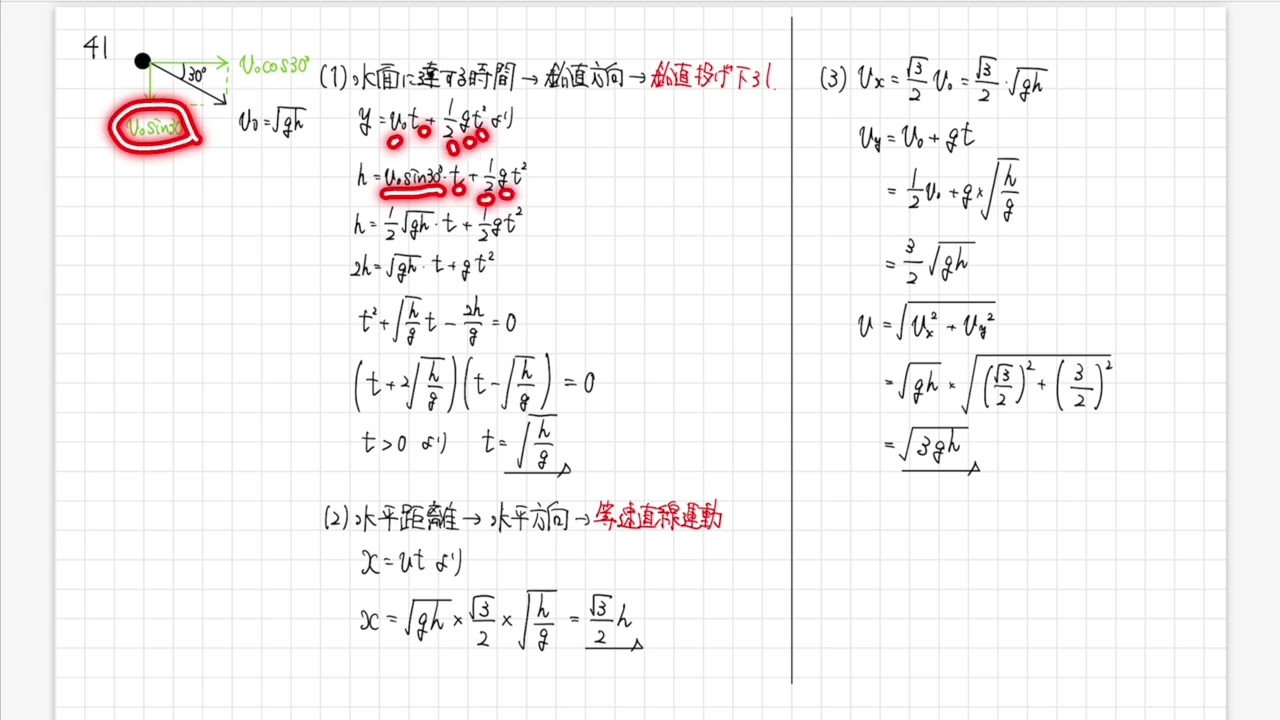 41
v₀cos30°
30°
v₀sin30°
v₀=√gh
(1) 水面に達する時間→鉛直方向→鉛直投げ下ろし
y = v₀t + 1/2 gt² より
h = v₀sin30°・t + 1/2 gt²
h = 1/2 √gh・t + 1/2 gt²
2h = √gh・t + gt²
t² + √(h/g) t − 2h/g = 0
(t + 2√(h/g))(t − √(h/g)) = 0
t > 0 より t = √(h/g)
(2) 水平距離→水平方向→等速直線運動
x = vt より
x = √gh × √3/2 × √(h/g) = √3/2 h
(3) vx = √3/2 v₀ = √3/2・√gh
vy = v₀ + gt
= 1/2 v₀ + g × √(h/g)
= 3/2 √gh
v = √(vx² + vy²)
= √gh × √((√3/2)² + (3/2)²)
= √3gh